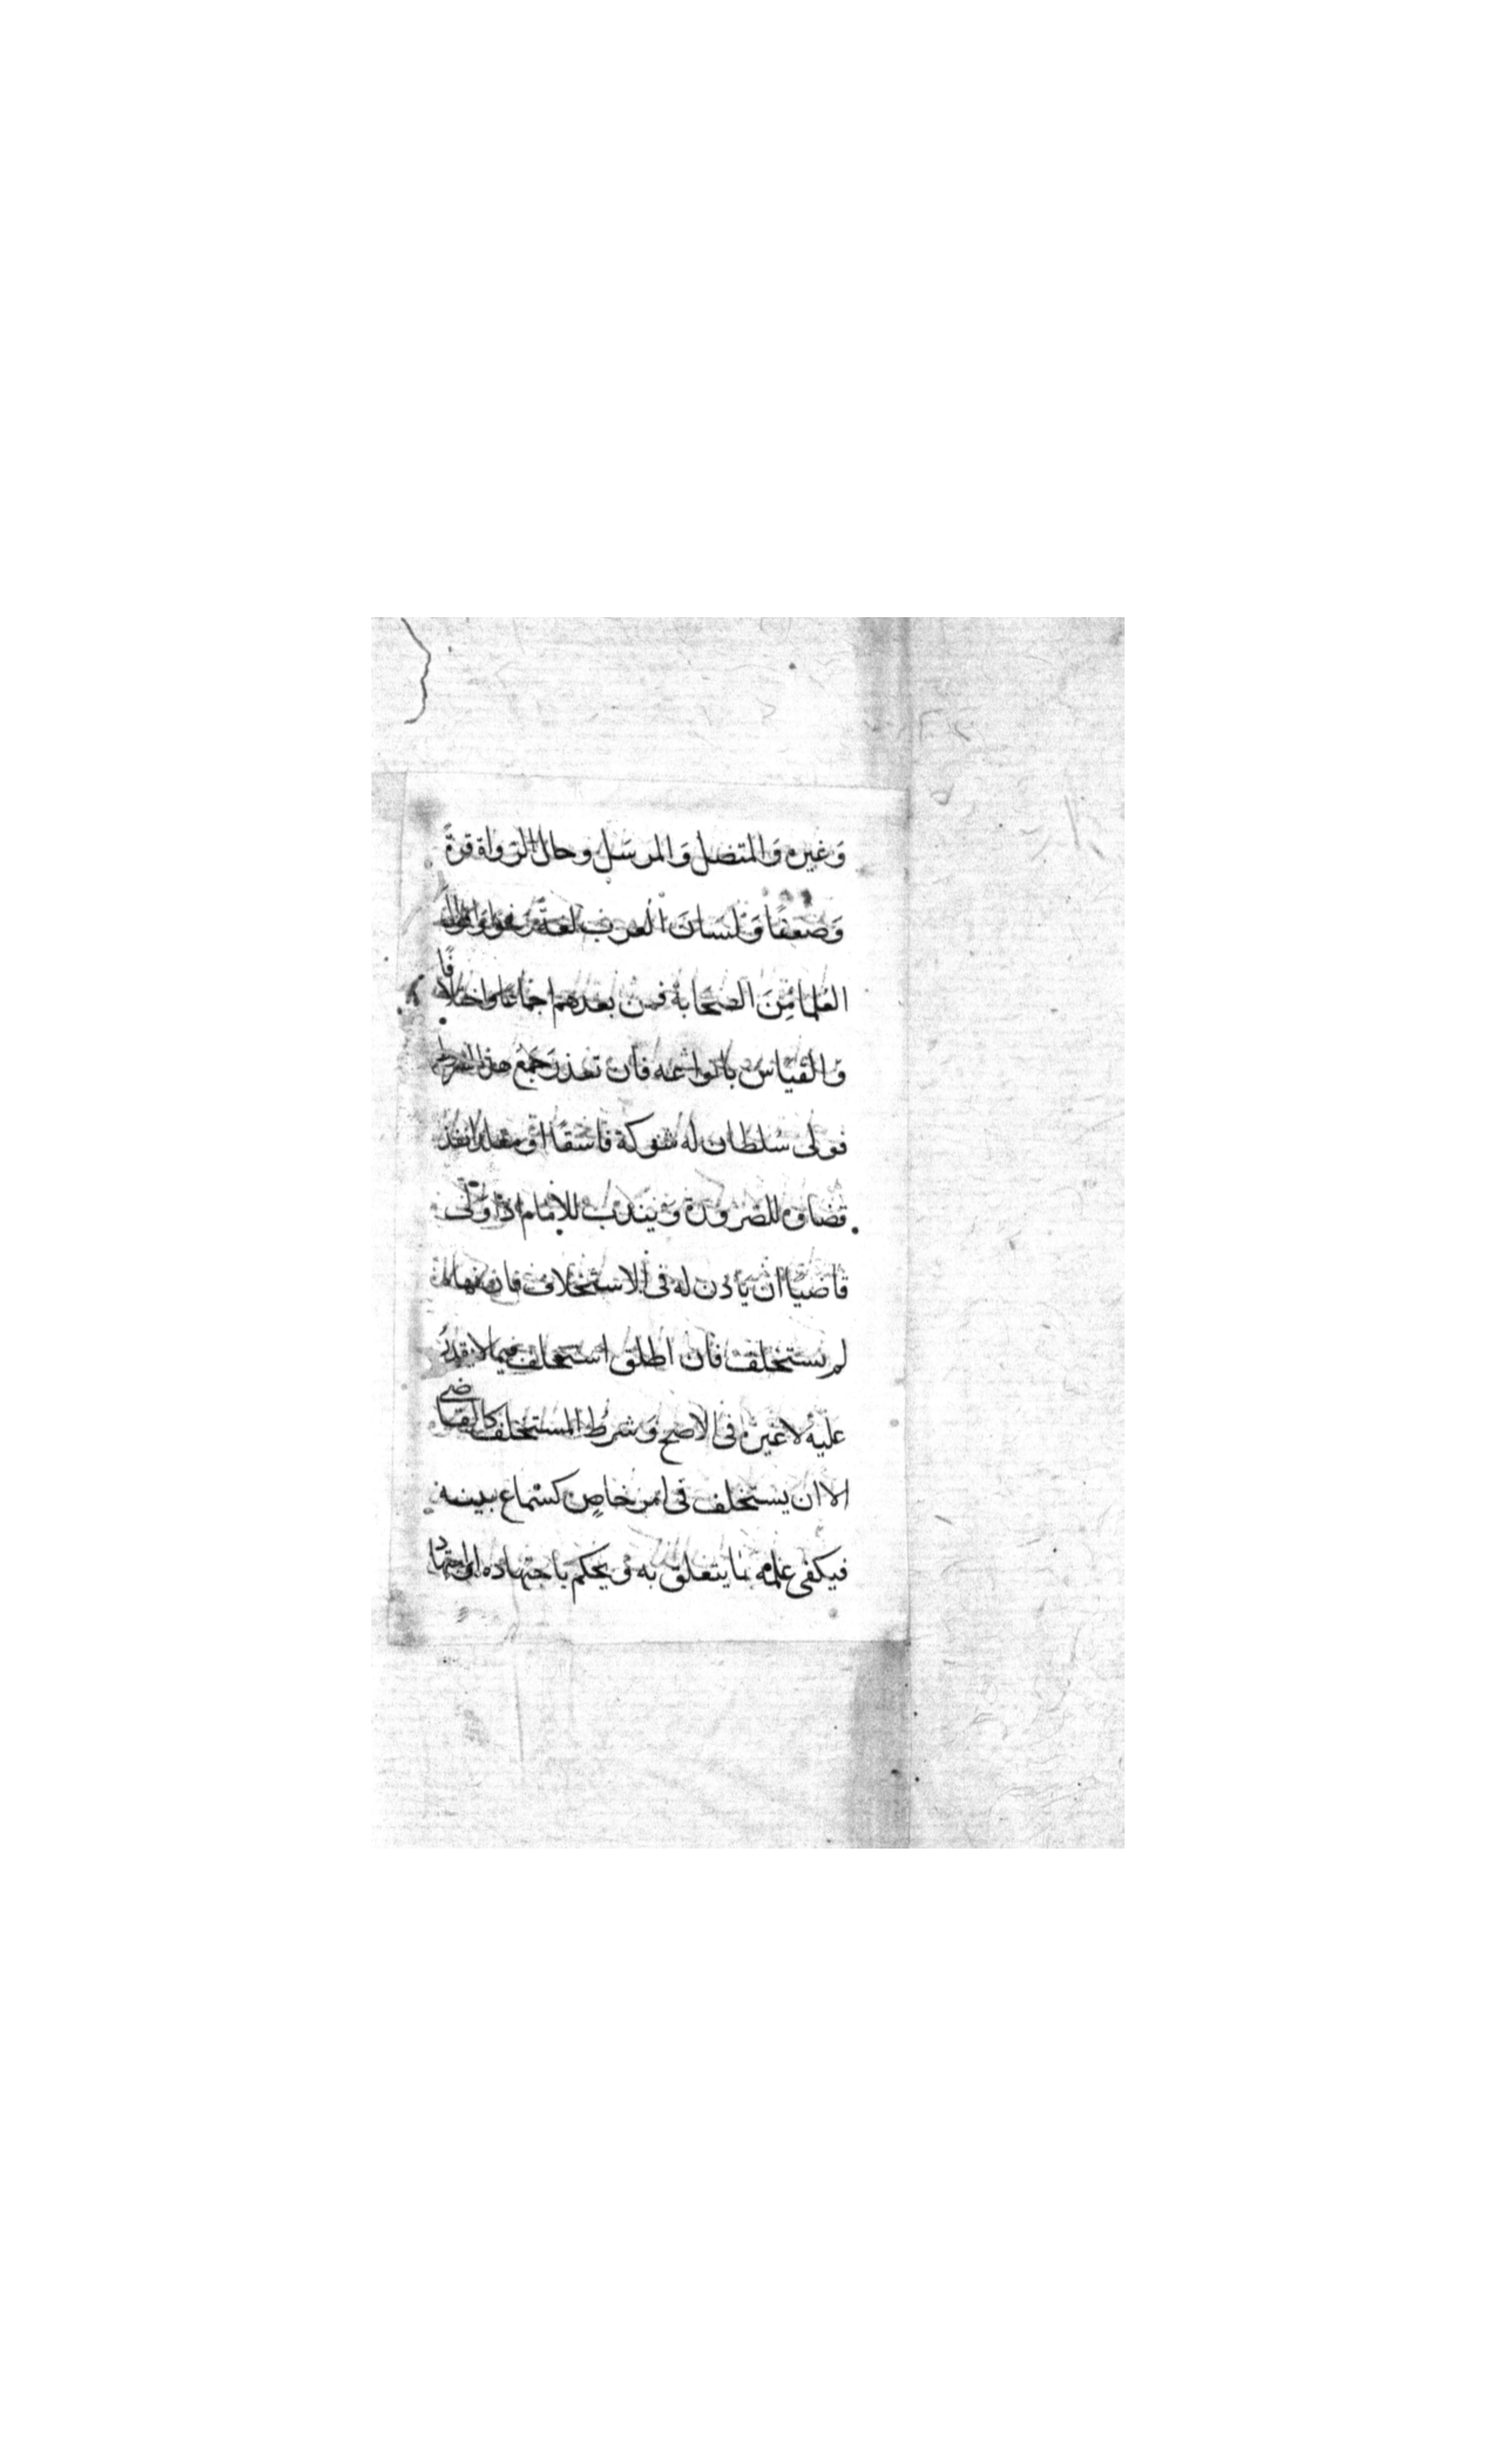 وَغيره وَالمتصل وَالمرسَل وحال الرواة قوةً
وَضعفًا وَلسَان العرب لغةً ونحوا واقوال
العُلما مِنَ الصحَابة فمن بعدهم اجماعا واختلافًا
وَالقيَاس بانواعه فان تعذر جمع هذه الشروط
فولى سُلطان له شوكة فاسقًا او مقلدا نفذ
قضاوه للضرورة وَيندب للامام اذا ولى
قاضيًا ان يأذن له فى الاستخلاف فان نهاه
لم يستخلف فان اطلق استخلف فيما لا يقدر
عليه لا غيره فى الاصح وَشرط المستخلف كالقاضى
الا ان يستخلف فى امر خاصٍ كسماع بينة
فيكفى علمه بما يتعلق به وَيحكم باجتهاده او اجتهاد